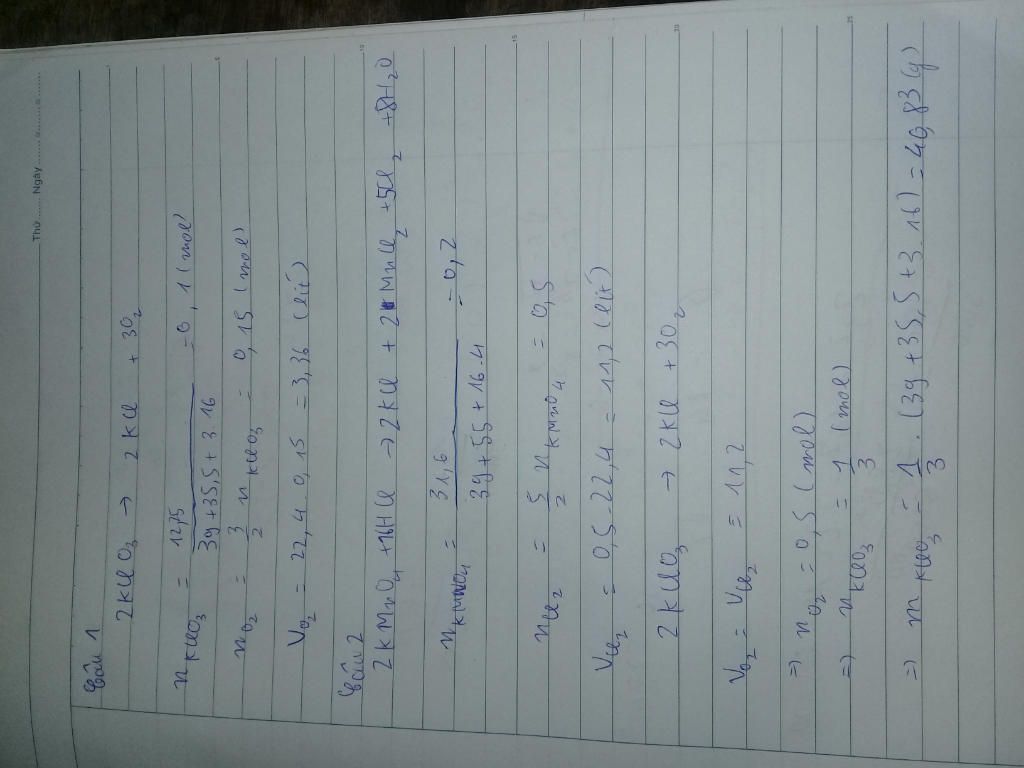 Thứ ........ Ngày ........
Câu 1
2KClO3 → 2KCl + 3O2
nKClO3 = 12,25 / (39+35,5+3.16) = 0,1 (mol)
nO2 = 3/2 nKClO3 = 0,15 (mol)
VO2 = 22,4 . 0,15 = 3,36 (lít)
Câu 2
2KMnO4 +16HCl → 2KCl + 2MnCl2 +5Cl2 +8H2O
nKMnO4 = 31,6 / (39+55+16.4) = 0,2
nCl2 = 5/2 nKMnO4 = 0,5
VCl2 = 0,5.22,4 = 11,2 (lít)
2KClO3 → 2KCl +3O2
VO2 = VCl2 = 11,2
=> nO2 = 0,5 (mol)
=> nKClO3 = 1/3 (mol)
=> mKClO3 = 1/3 . (39+35,5+3.16) = 40,83 (g)